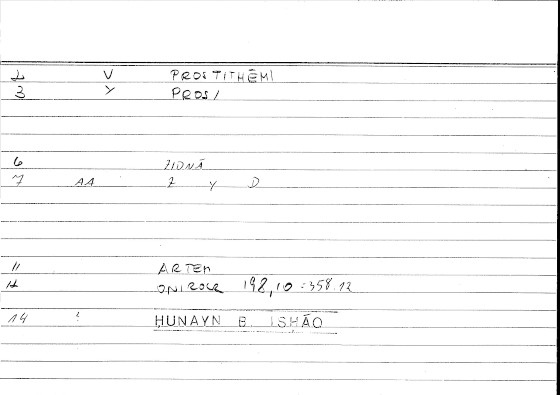 2 V PROSTITHĒMI
3 Y PROS/
6 ZIDNĀ
7 AA Z Y D
11 ARTEM
12 ONIROCR 198,10 : 358.12
14 HUNAYN B. ISḤĀQ